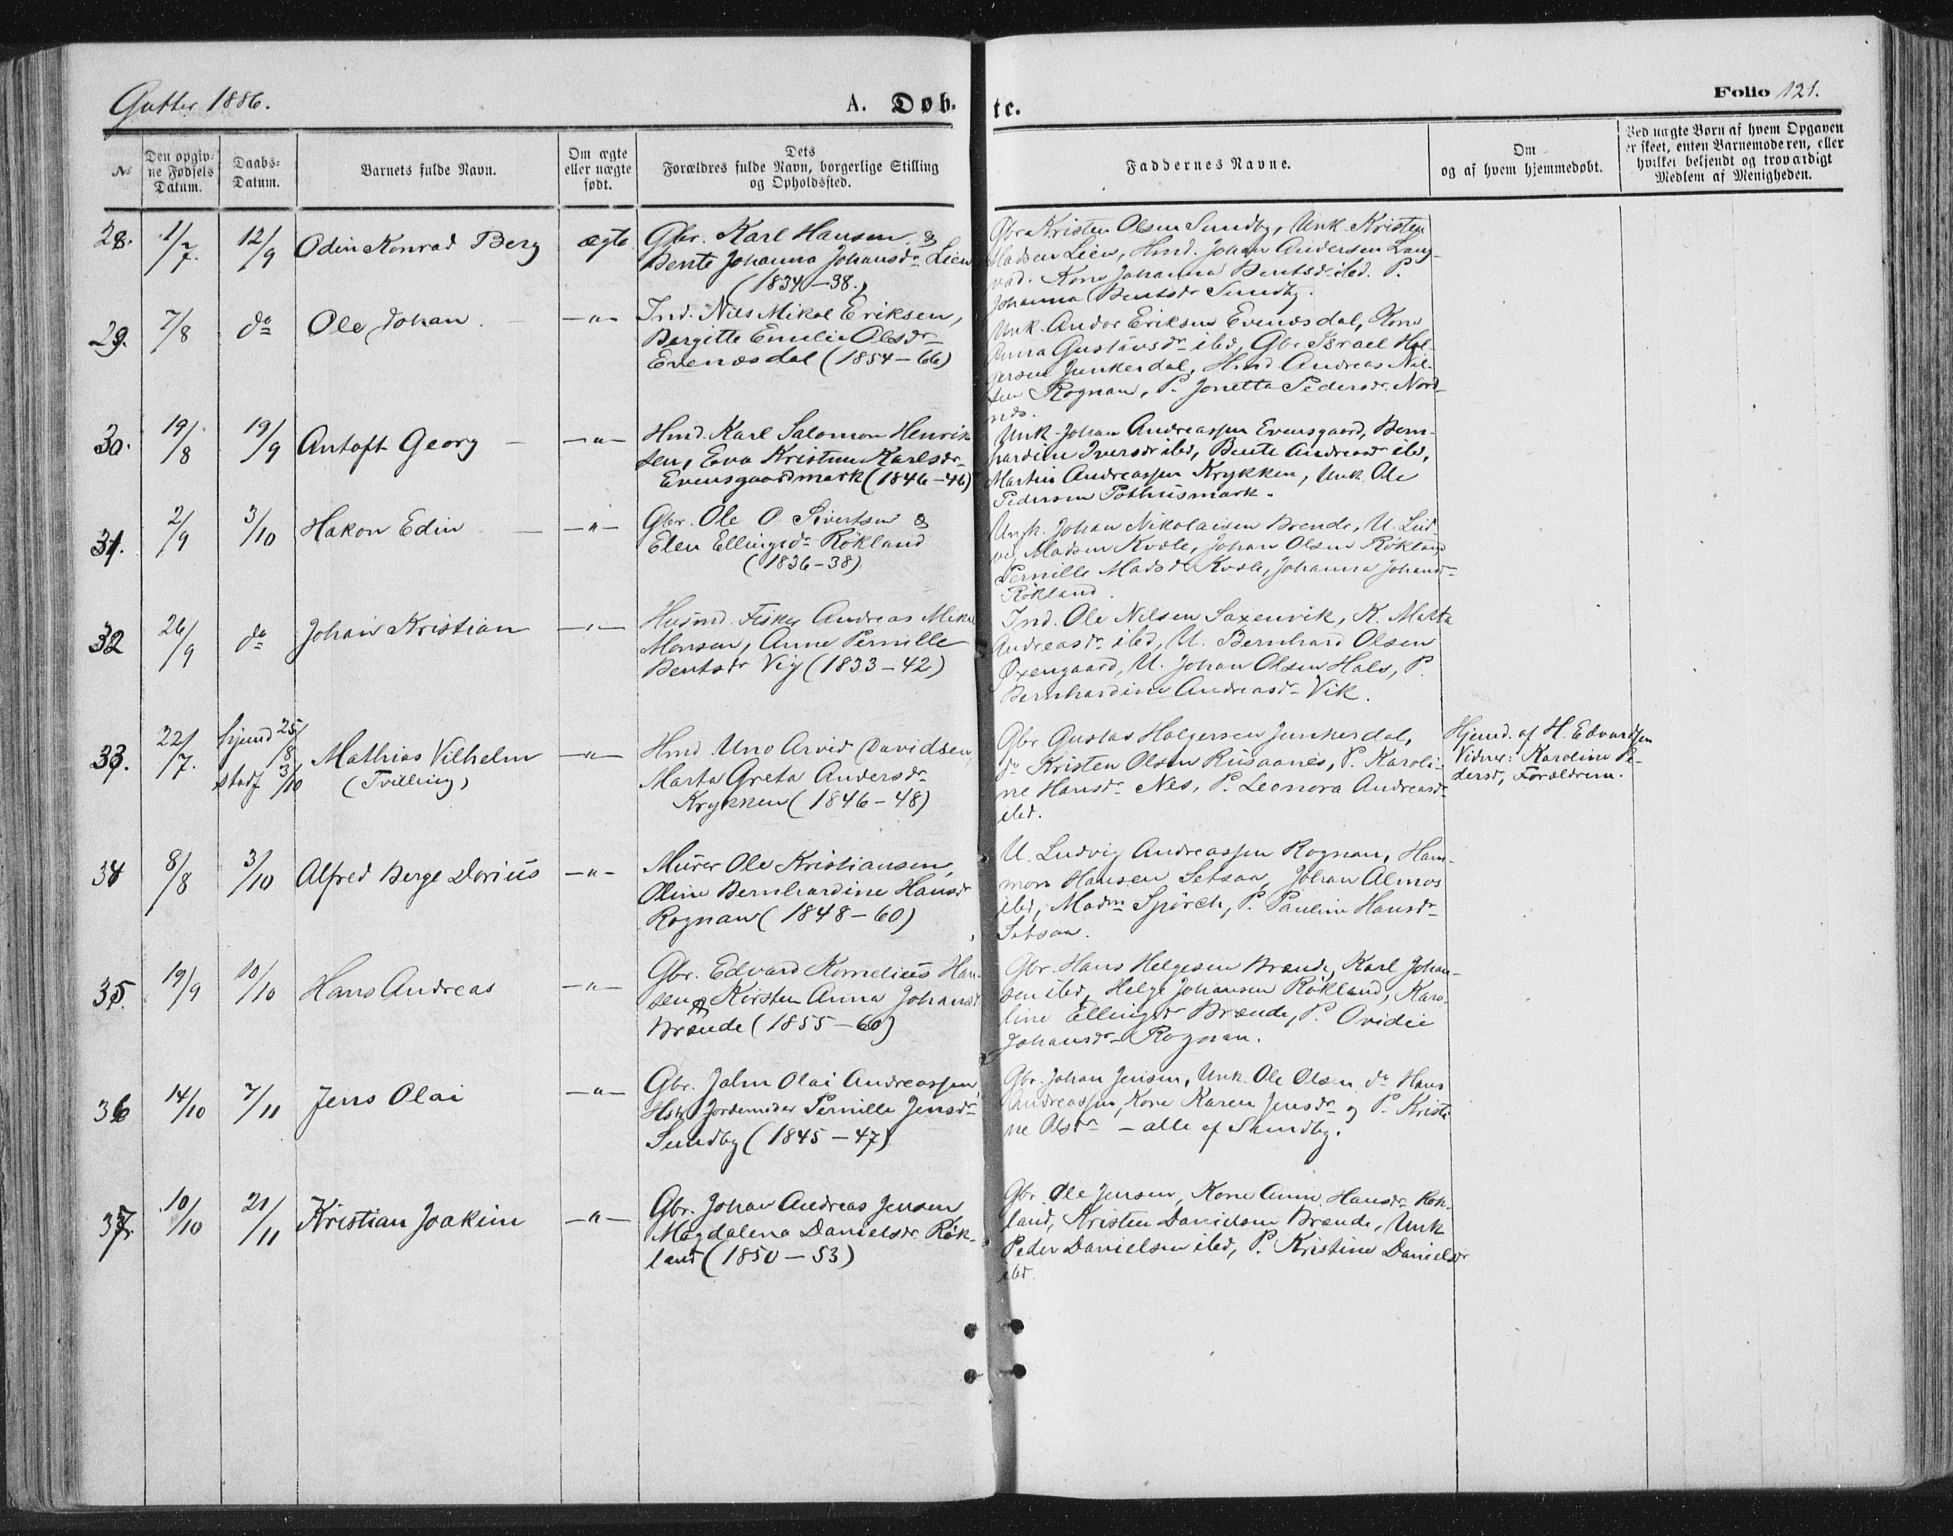 Gutter 1886.
A. Døb-
te.
Folio 121.
№
Den opgiv-
ne Fødsels
Datum.
Daabs-
Datum.
Barnets fulde Navn.
Om ægte
eller uægte
født.
Dets
Forældres fulde Navn, borgerlige Stilling
og Opholdssted.
Faddernes Navne.
Om
og af hvem hjemmedøbt.
Ved uægte Børn af hvem Opgaven
er skeet, enten Barnemoderen, eller
hvilket bekjendt og troværdigt
Medlem af Menigheden.
28. 1/7. 12/9 Odin Konrad Berg ægte
Gbr. Karl Hansen &
Bente Johanna Johansdr Lien
(1834-38.)
Gbr. Kristen Olsen Sundby, Unk. Kristen
Madsen Lien, Hmd. Johan Andersen
Kone Johanna Bentsdr ibd. P.
Johanna Bentsdr Sundby.
29. 7/8 do Ole Johan - " -
Ind. Nils Mikal Eriksen,
Bergitte Emilie Olsdr
Evenesdal (1854-66)
Unk. Andor Eriksen Evenesdal, Kone
Anna Gustavsdr ibd, Gbr. Israel Hol-
gersen Junkerdal, Hmd. Andreas Nil-
sen Rognan, P. Jonetta Pedersdr Nord-
nes.
30. 19/8 19/9 Antoft Georg - " -
Hmd. Karl Salomon Henrik
sen, Eva Kristine Karlsdr
Evensgaardmark (1846-46)
Unk. Johan Andreassen Evensgaard, Bern-
hardine Iversdr ibd, Bente Andreasdr ibd,
Martin Andreassen Krykken, Unk. Ole
Pedersen Pothusmark.
31. 2/9 3/10 Hakon Edin - " -
Gbr. Ole O. Sivertsen &
Elen Ellingsdr Røkland
(1836-38)
Ungk. Johan Nikolaisen Brende, U. Lud
vig Madsen Kvæle, Johan Olsen Røkland
Pernille Madsdr Kvæle, Johanna Johansdr
Røkland.
32 26/9 do Johan Kristian - " -
Husmd. Fisker Andreas Mikal
Monsen, Anne Pernille
Bentsdr Vig (1833-42)
Ind. Ole Nilsen Saxenvik, K. Matta
Andreasdr ibd, U. Bernhard Olsen
Øxengaard, U. Johan Olsen Hals, P.
Bernhardine Andreasdr Vik.
33. 22/7. hjemd 25/8
stadf 3/10
Mathias Vilhelm - " -
(Tvilling)
Hmd Uno Arvid Davidsen
Marta Greta Andersdr
Krykken (1846-48)
Gbr. Gustav Holgersen Junkerdal,
do Kristen Olsen Rusaanes, P. Karoli-
ne Hansdr Nes, P. Leonora Andreasdr
ibd.
Hjemd. af H. Edvardsen
Vidner: Karoline Pe-
dersdr, Forældrene.
34 8/8 3/10 Alfred Berge Dorius - " -
Murer Ole Kristiansen,
Oline Bernhardine Hansdr
Rognan (1848-60)
U. Ludvig Andreassen Rognan, Ham-
mon Hansen Setsaa, Johan Almos
ibd, Madm Spørch, P. Pauline Hansdr
Setsaa.
35. 19/9 10/10 Hans Andreas - " -
Gbr. Edvard Kornelius Han-
sen & Kirsten Anna Johansdr
Brænde (1855-60)
Gbr. Hans Helgesen Brænde, Karl Johan-
sen ibd, Helge Johansen Røkland, Karo-
line Ellingsdr Brænde, P. Ovidie
Johansdr Rognan.
36 14/10 7/11 Jens Olai - " -
Gbr. John Olai Andreassen,
Hst Jordemoder Pernille Jensdr
Sundby (1845-47)
Gbr. Johan Jensen, Unk. Ole Olsen, do Hans
Andreassen, Kone Karen Jensdr og P. Kristi
ne Olsdr - alle af Sundby.
37. 10/10 21/11 Kristian Joakim - " -
Gbr. Johan Andreas Jensen
Magdalena Danielsdr Røk-
land (1850-53)
Gbr. Ole Jensen, Kone Anne Hansdr Røk-
land, Kristen Danielsen Brænde, Unk
Peder Danielsen ibd, P. Kristine Danielsdr
ibd.